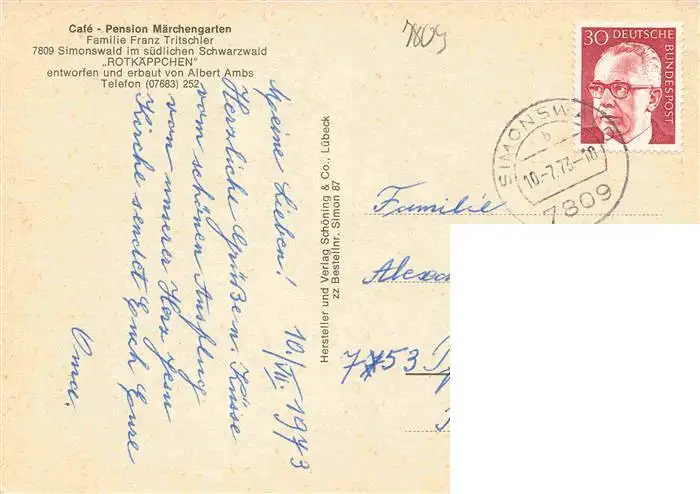 Café - Pension Märchengarten
Familie Franz Tritschler
7809 Simonswald im südlichen Schwarzwald
„ROTKÄPPCHEN"
entworfen und erbaut von Albert Ambs
Telefon (07683) 252
Meine Lieben! 10./VII. 1973
Herzliche Grüße u. Küsse
vom schönen Ausflug
von unserer Herz Jesu
Kirche sendet Euch Eure
Oma.
Hersteller und Verlag Schöning & Co., Lübeck
zz Bestellnr. Simon 87
7809
30 DEUTSCHE BUNDESPOST
SIMONSWALD
b
10.-7.73-10
7809
Familie
Alexa
7753